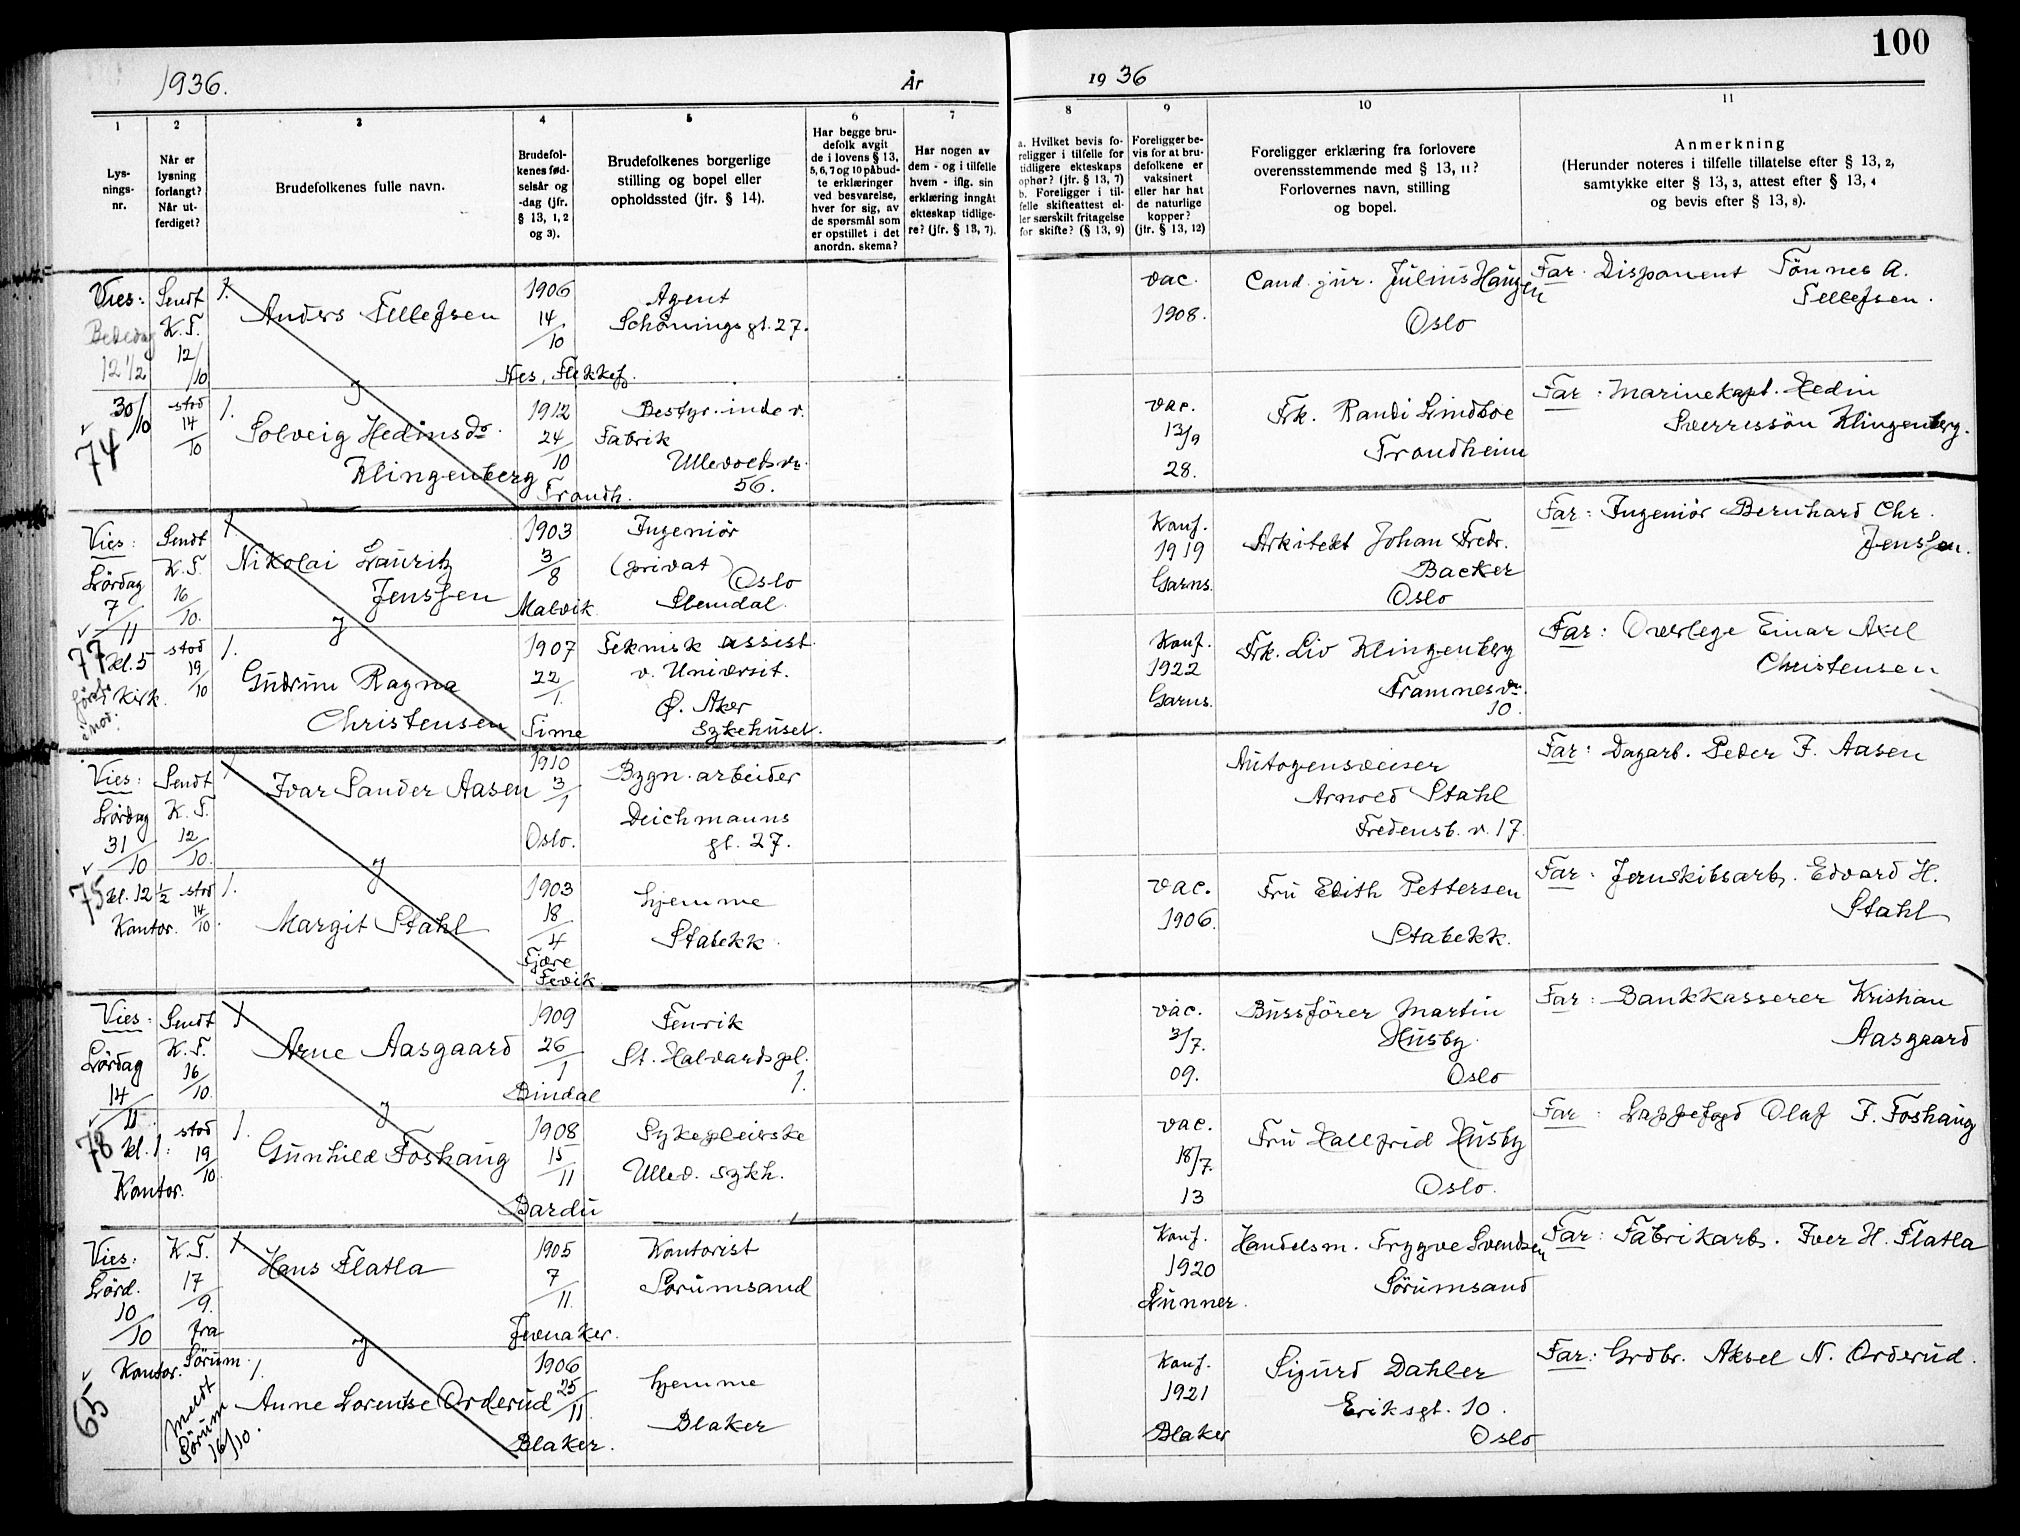 100
1936.
År
19 36
1
2
3
4
5
6
7
8
9
10
11
Lys-
nings-
nr.
Når er
lysning
forlangt?
Når ut-
ferdiget?
Brudefolkenes fulle navn.
Brudefol-
kenes fød-
selsår og
-dag (jfr.
§ 13, 1, 2
og 3).
Brudefolkenes borgerlige
stilling og bopel eller
opholdssted (jfr. § 14).
Har begge bru-
defolk avgit
de i lovens § 13,
5, 6, 7 og 10 påbud-
te erklæringer
ved besvarelse,
hver for sig, av
de spørsmål som
er opstillet i det
anordn. skema?
Har nogen av
dem - og i tilfelle
hvem - iflg. sin
erklæring inngåt
ekteskap tidlige-
re? (jfr. § 13, 7).
a. Hvilket bevis fo-
religger i tilfelle for
tidligere ekteskaps
ophør? (jfr. § 13, 7)
b. Foreligger i til-
felle skifteattest el-
ler særskilt fritagelse
for skifte? (§ 13, 9)
Foreligger be-
vis for at bru-
defolkene er
vaksinert
eller har hat
de naturlige
kopper?
(jfr. § 13, 12)
Foreligger erklæring fra forlovere
overensstemmende med § 13, 11?
Forlovernes navn, stilling
og bopel.
Anmerkning
(Herunder noteres i tilfelle tillatelse efter § 13, 2,
samtykke efter § 13, 3, attest efter § 13, 4
og bevis efter § 13, 8).
Vies:
12 1/2
30/10
74
Sendt
K.F.
12/10
stod
14/10
1.
Anders Tellefsen
g
1.
Solveig Hedinsdr.
Klingenberg
1906
14/10
Nes, Flekkefj.
1912
24/10
Trondh.
Agent
Schønings gt. 27.
Bestyr.inde v.
Fabrik
Ullevoldsv.
56.
vac.
1908.
vac.
13/9
28.
Cand. jur. Julius Haugen
Oslo
Frk. Randi Lindboe
Trondheim
Far. Disponent Tönnes A.
Tellefsen.
Far: Marinekapt. Hedin
Sverressön Klingenberg.
Vies:
Lördag
7/11
77
kl. 5
Kirk.
Sendt
K.F.
16/10.
stod
19/10
Nikolai Lauritz
Jenssen
g
1.
Gudrun Ragna
Christensen
1903
3/8
Malvik
1907
22/1.
Time
Ingeniör
(privat) Oslo
Slemdal.
Teknisk assist.
v. Universit.
Ø. Aker
Sykehuset.
Konf.
1919
Garns.
Konf.
1922
Garns.
Arkitekt Johan Fredr.
Backer
Oslo
Frk. Liv Klingenberg
Framnesv.
10.
Far: Ingeniör Bernhard Chr.
Jenssen.
Far: Overlege Einar Axel
Christensen
Vies:
Lördag
31/10
75
kl. 12 1/2
Kontor.
Sendt
K.F.
12/10.
stod
14/10.
Ivar Sander Aasen
g
1.
Margit Stahl
1910
3/1
Oslo.
1903
18/4
Fjære
Fevik
Bygn. arbeider
Deichmanns
gt. 27.
hjemme
Stabekk
vac.
1906.
Autogensveiser
Arnold Stahl
Fredensb. v. 17.
Fru Edith Pettersen
Stabekk.
Far: Dagarb. Peder F. Aasen
Far: Jernskibsarb. Edvard H.
Stahl
Vies:
Lördag
14/11
78
kl. 1.
Kontor.
Sendt
K.F.
16/10.
stod
19/10.
Arne Aasgaard
g
1.
Gunhild Foshaug
1909
26/1
Bindal
1908
15/11
Bardu
Fenrik
St. Halvardspl.
1.
Sykepleirske
Ullev. sykh.
vac.
3/7.
09.
vac.
18/7.
13
Bussförer Martin
Husby.
Oslo
Fru Hallfrid Husby
Oslo.
Far: Bankkasserer Kristian
Aasgaard
Far: Lappefogd Olaf F. Foshaug
Vies:
Lörd.
10/10
Kontor.
65
K.F.
17/9.
fra
Sörum.
Meldt
Sörum
16/10.
1.
Hans Flatla
g
1.
Anne Lorentse Orderud
1905
7/11.
Jevnaker.
1906
25/11.
Blaker.
Kontorist
Sörumsand
hjemme
Blaker
Konf.
1920
Lunner.
Konf.
1921
Blaker
Handelsm. Trygve Svendsen
Sörumsand
Sigurd Dahler
Eriksgt. 10.
Oslo
Far: Fabrikarb. Iver H. Flatla
Far: Grdbr. Aksel N. Orderud.